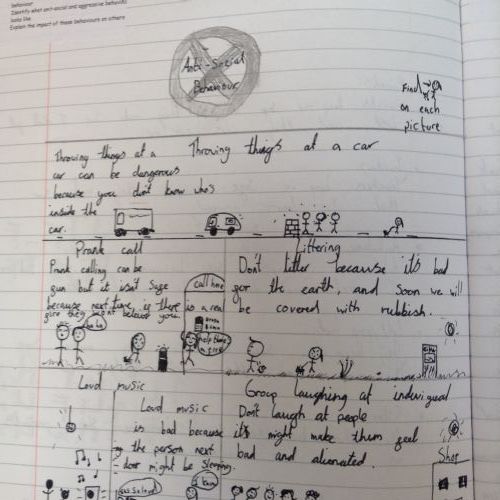 Behaviour
Identify what anti-social and aggressive behaviour
looks like
Explain the impact of these behaviours on others
Anti-Social
Behaviour
Find
on each
picture
Throwing things at a car
Throwing things at a
car can be dangerous
because you don't know who's
inside the
car.
Prank call
Prank calling can be
gun but it isn't sage
because next time, ig there is a real
gire they won't believe you.
call home
help there's
a gire
ha ha
Littering
Don't litter because it's bad
gor the earth, and soon we will
be covered with rubbish.
Loud music
Loud music
is bad because
the person next
door might be sleeping.
Group laughing at indivigual
Don't laugh at people
it's might make them geel
bad and alienated.
Shop